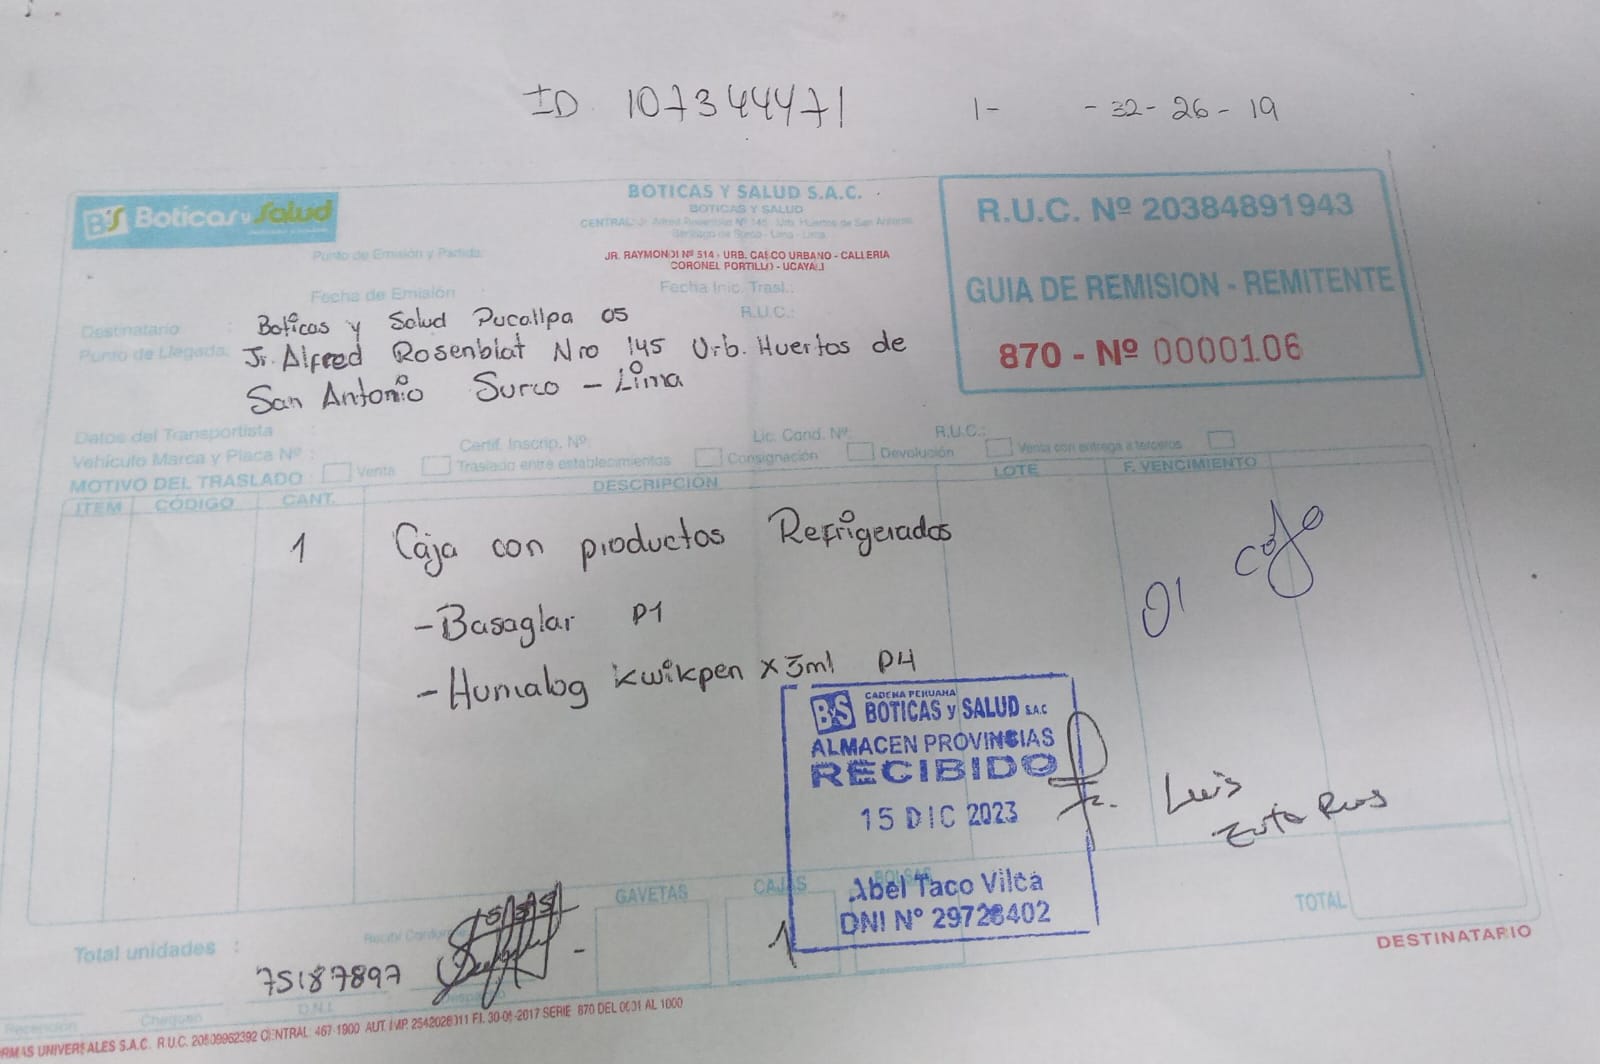 ID 107344471 1- - 32 - 26 - 19
BS Boticas y Salud
BOTICAS Y SALUD S.A.C.
BOTICAS Y SALUD
CENTRAL: Jr. Alfred Rosenblat Nº 145 Urb. Huertos de San Antonio
Santiago de Surco - Lima - Lima
Punto de Emisión y Partida:
JR. RAYMONDI Nº 514 - URB. CASCO URBANO - CALLERIA
CORONEL PORTILLO - UCAYALI
R.U.C. Nº 20384891943
GUIA DE REMISION - REMITENTE
870 - Nº 0000106
Fecha de Emisión
Fecha Inic. Trasl.:
Destinatario : Boticas y Salud Pucallpa 05
R.U.C.:
Punto de Llegada: Jr. Alfred Rosenblat Nro 145 Urb. Huertos de
San Antonio Surco - Lima
Datos del Transportista :
Vehículo Marca y Placa Nº :
Certif. Inscrip. Nº:
Lic. Cond. Nº:
R.U.C.:
MOTIVO DEL TRASLADO
Venta
Traslado entre establecimientos
Consignación
Devolución
Venta con entrega a terceros
ITEM CÓDIGO CANT. DESCRIPCIÓN LOTE F. VENCIMIENTO
1 Caja con productos Refrigerados
- Basaglar P1
- Humalog kwikpen x 3ml P4
BS CADENA PERUANA
BOTICAS y SALUD S.A.C
ALMACEN PROVINCIAS
RECIBIDO
15 DIC 2023
Abel Taco Vilca
DNI Nº 29728402
Luis
Total unidades :
Recibí Conforme
GAVETAS
CAJAS
BOLSAS
TOTAL
1
75187897
D.N.I.
Despacho
Recepción
Chequeo
DESTINATARIO